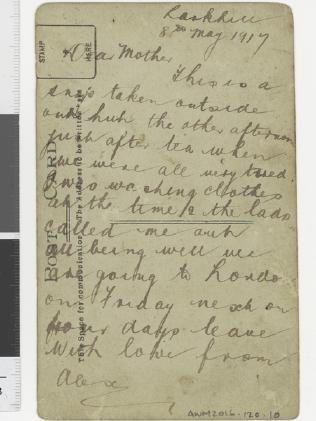 Larkhill
8th May 1917
Dear Mother
This is a
snap taken outside
our hut the other afternoon
just after tea when
we were all very tired.
I was washing clothes
at the time & the lads
called me out
All being well we
are going to London
on Friday next on
four days leave
With love from
Alex
STAMP
HERE
POST CARD
This Space for communication
The Address to be written
AWM2016.120.10